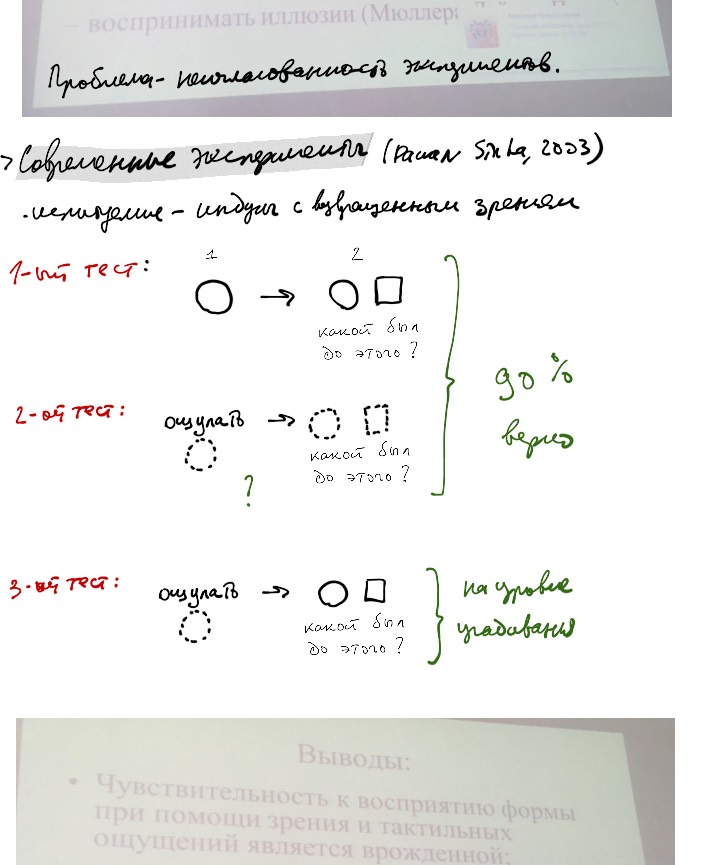 – воспринимать иллюзии (Мюллер
Проблема - несогласованность экспериментов.
> Современные эксперименты (Pawan Sinha, 2003)
. исследование - индусы с возвращенным зрением
1-ый тест:
1 2
→
какой был
до этого?
90 %
верно
2-ой тест:
ощупать →
какой был
до этого?
?
3-ий тест:
ощупать →
какой был
до этого?
на уровне
угадывания
Выводы:
• Чувствительность к восприятию формы
при помощи зрения и тактильных
ощущений является врожденной;